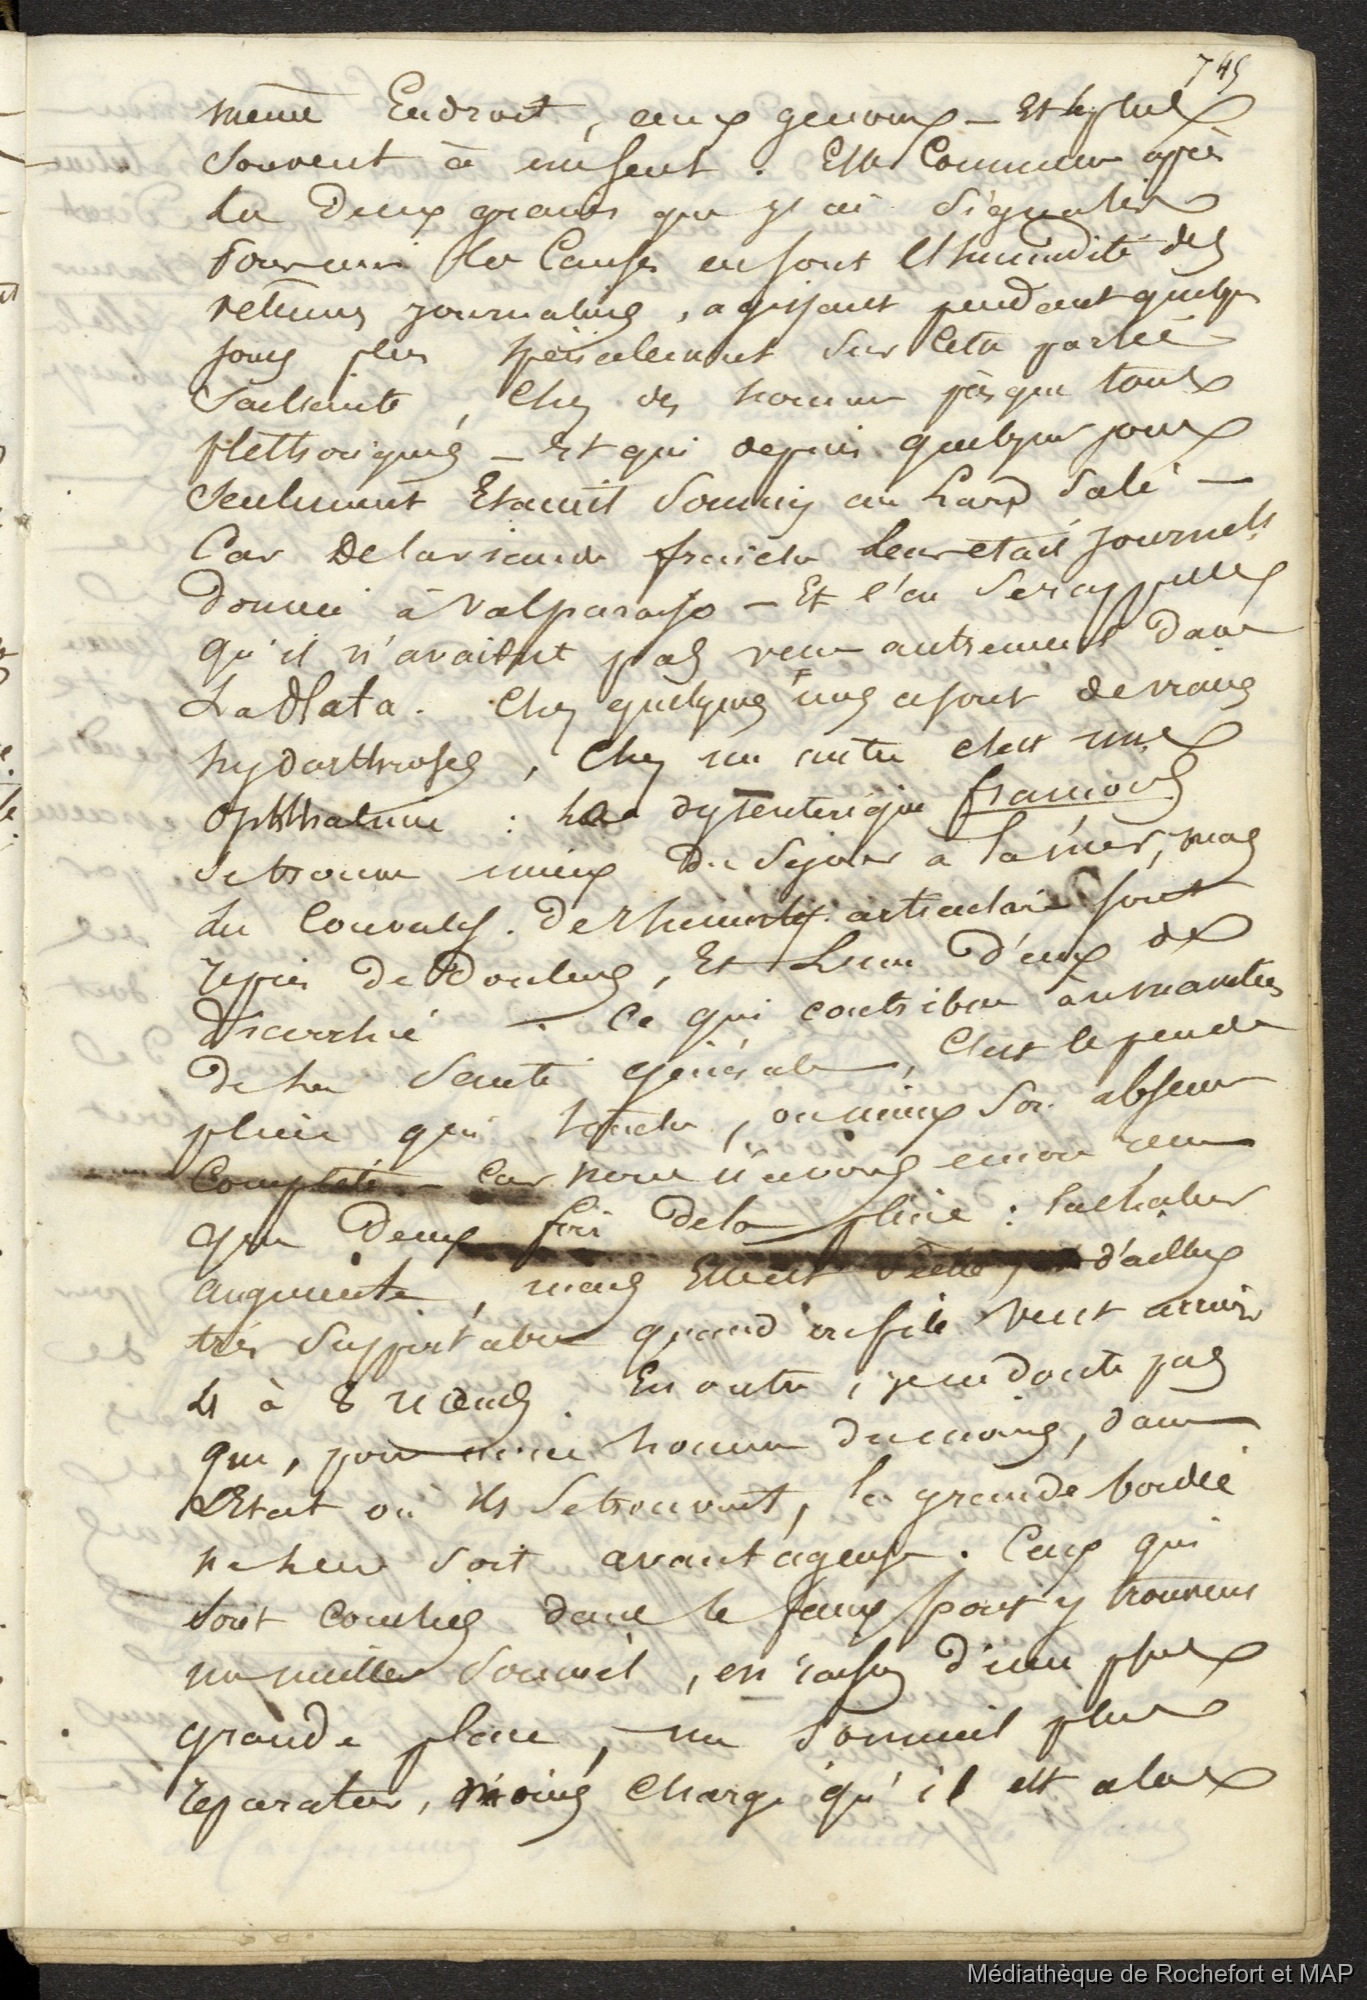 745
même Endroit, aux genoux — Et le plus
souvent à un seul. Elle Commence après
les deux grains que j'ai signalés
Pour moi les Causes en sont l'humidité des
jours plus spécialement sur Cette partie
Saillante, Chez des hommes presque tous
plethoriques — Et qui depuis quelques jours
seulement Etaient soumis au Lard salé —
Car De la viande fraiche leur était journelt
donnée à Valparaiso — Et l'on se rappelle
qu'il n'avaient pas vecu autrement dans
La Plata. Chez quelques uns ce sont de vraies
hydarthroses, Chez un autre c'est une
ophthalmie : Le dyssenterique francois
se trouve mieux du sejour à la mer, mais
les Convalesc. de rhumatis. articulaire sont
repris de Douleurs, Et L'un d'eux de
diarrhée. Ce qui contribue au maintien
de la santé générale, C'est le peu de
pluie qui tombe, ou mieux son absence
Complète — Car nous n'avons encore eu
que Deux fois de la pluie : la chaleur
augmente, mais Elle est d'ailleurs
très supportable quand on file vent arrière
à 8 nœuds. En outre, je ne doute pas
que, pour mes hommes du moins, dans
L'Etat où ils se trouvent, la grande bordée
ne leur soit avantageuse. Ceux qui
sont couchés dans le faux pont y trouvent
un meilleur sommeil, en raison d'une plus
grande place, un sommeil plus
reparateur, moins chargé qu'il est alors
Médiathèque de Rochefort et MAP